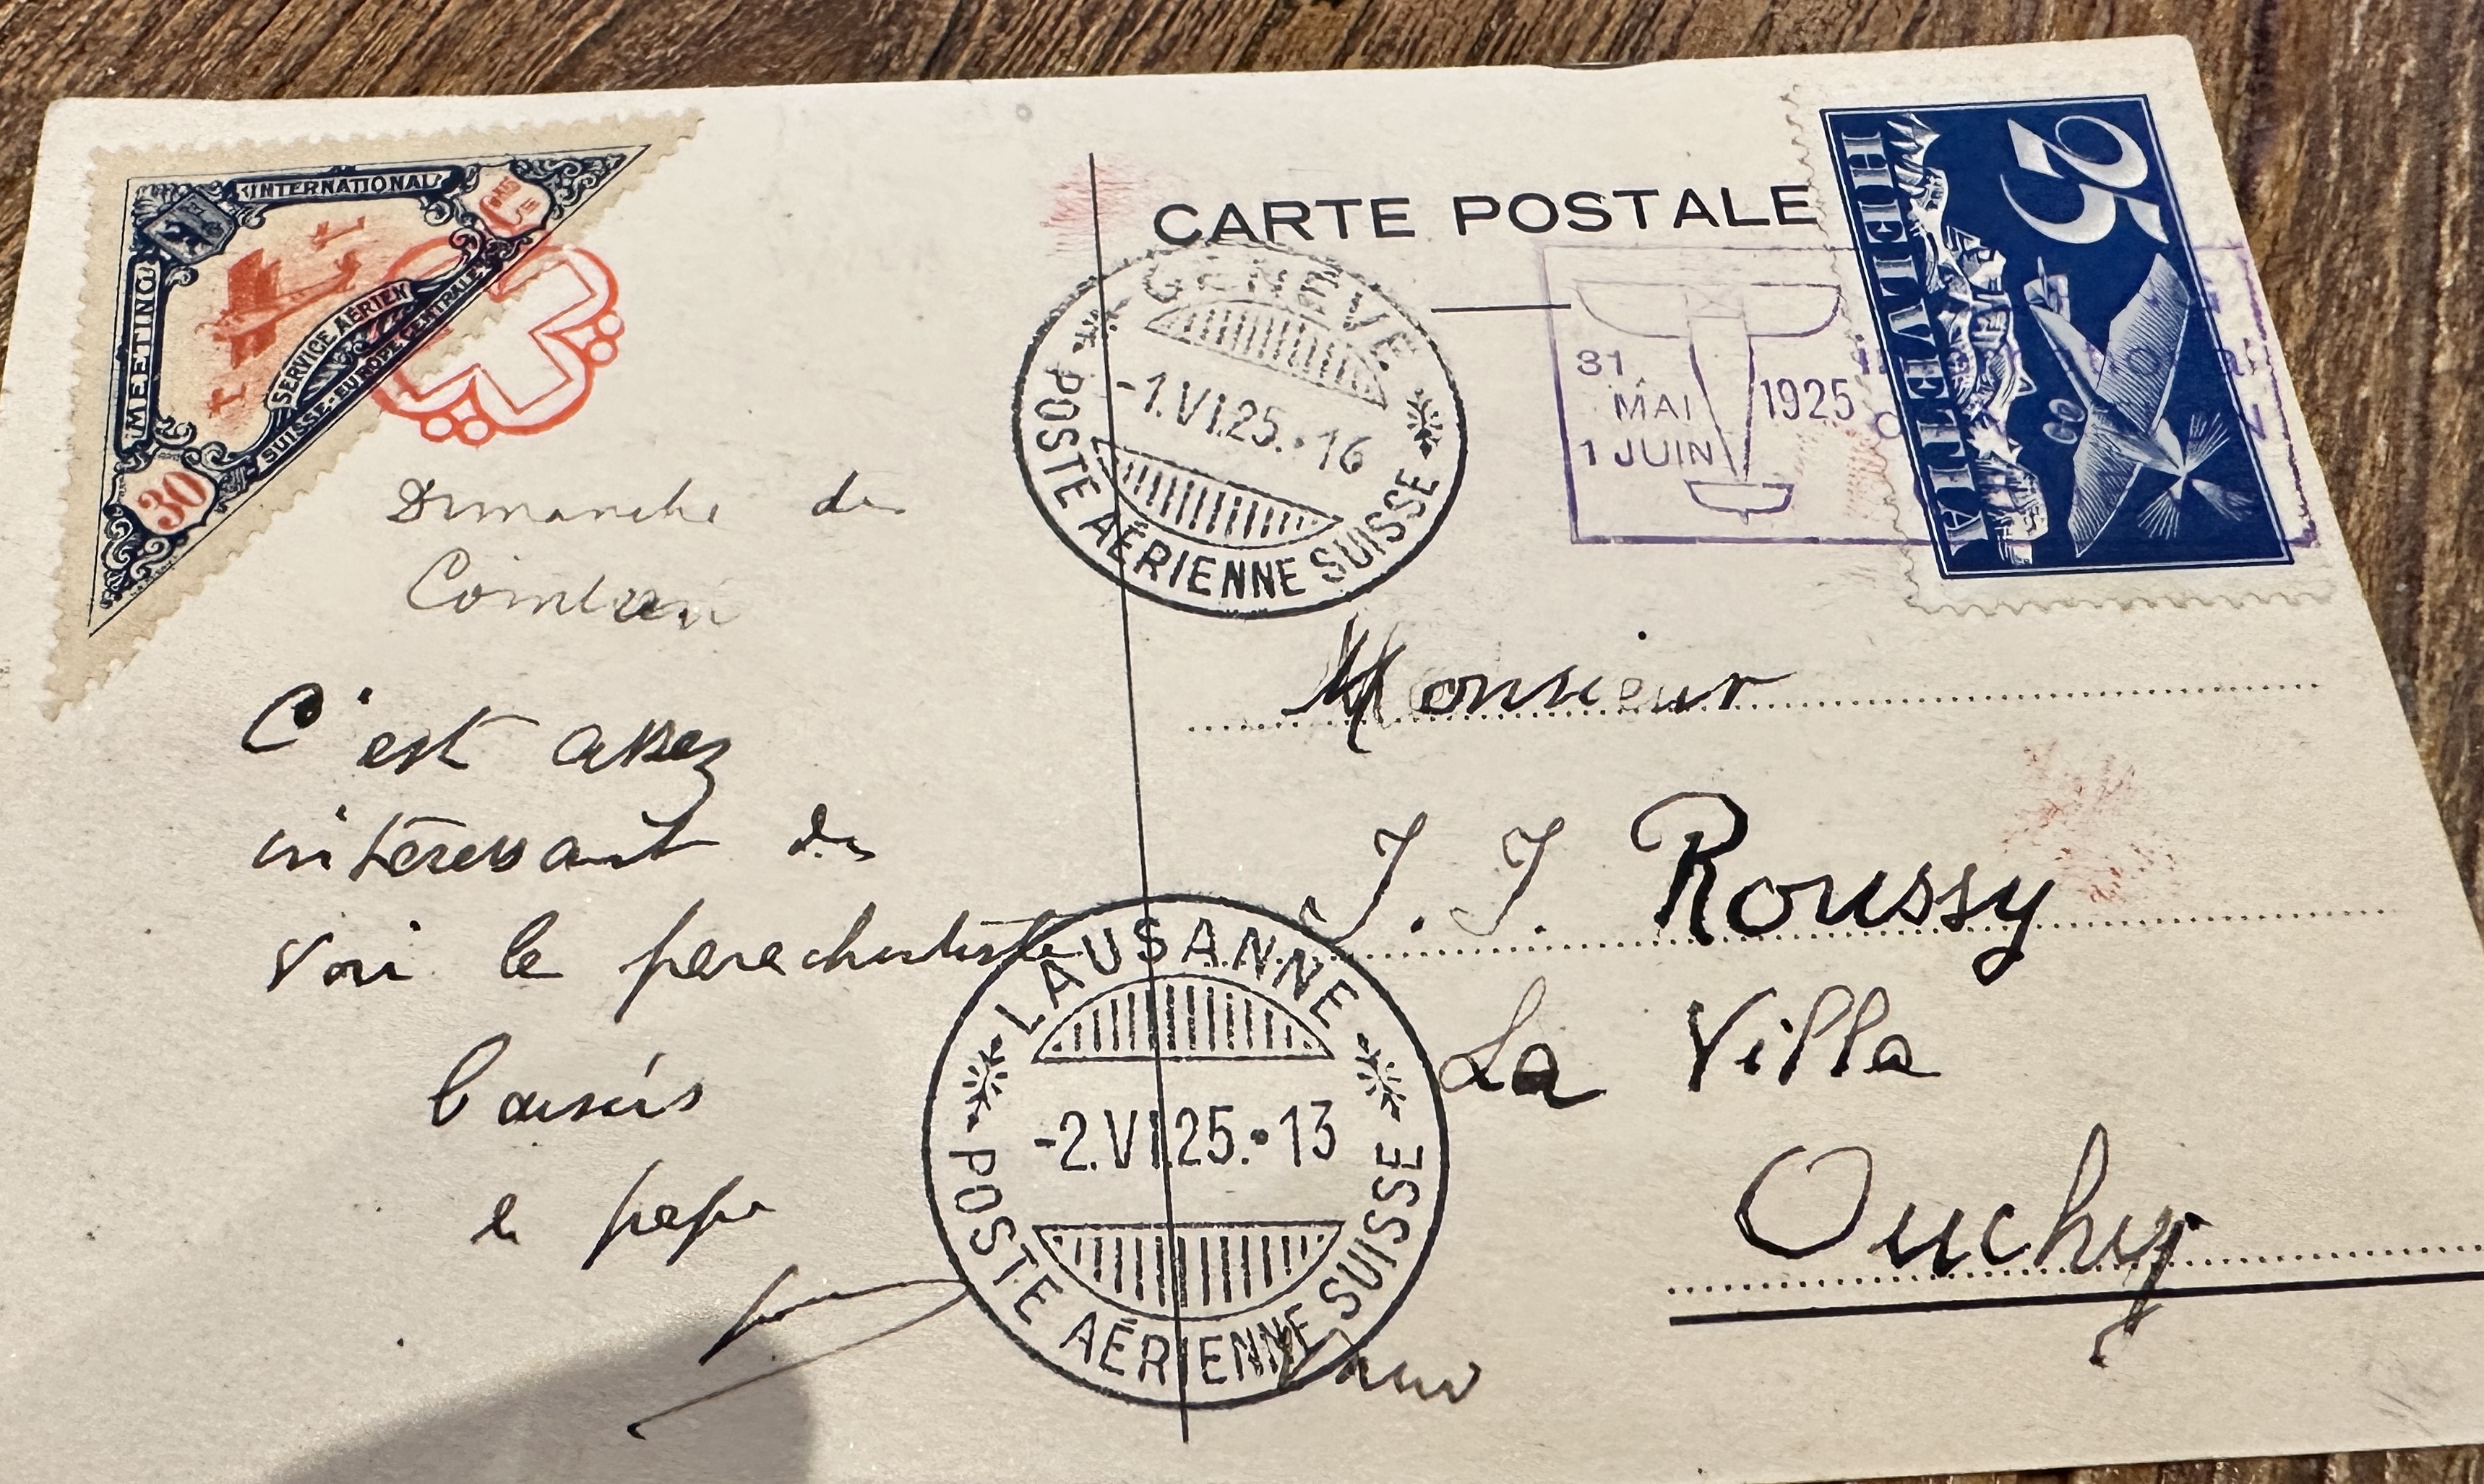 INTERNATIONAL
MEETING
SERVICE AÉRIEN
SUISSE-EUROPE CENTRALE
30
CARTE POSTALE
25
HELVETIA
GENÈVE
-1.VI.25.-16
POSTE AÉRIENNE SUISSE
31 MAI
1 JUIN
1925
Dimanche de
C'est assez
intéressant de
voir le parachutiste
baisers
papa
LAUSANNE
-2.VI.25.-13
POSTE AÉRIENNE SUISSE
Monsieur
J. J. Roussy
La Villa
Ouchy